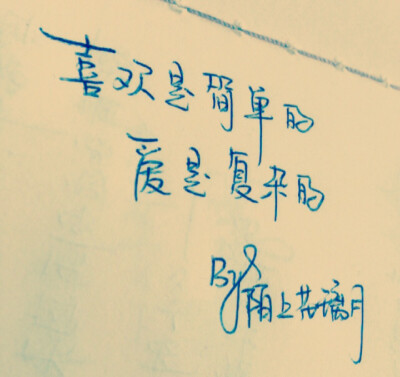 喜欢是简单的
爱是复杂的
By 陌上花璃月